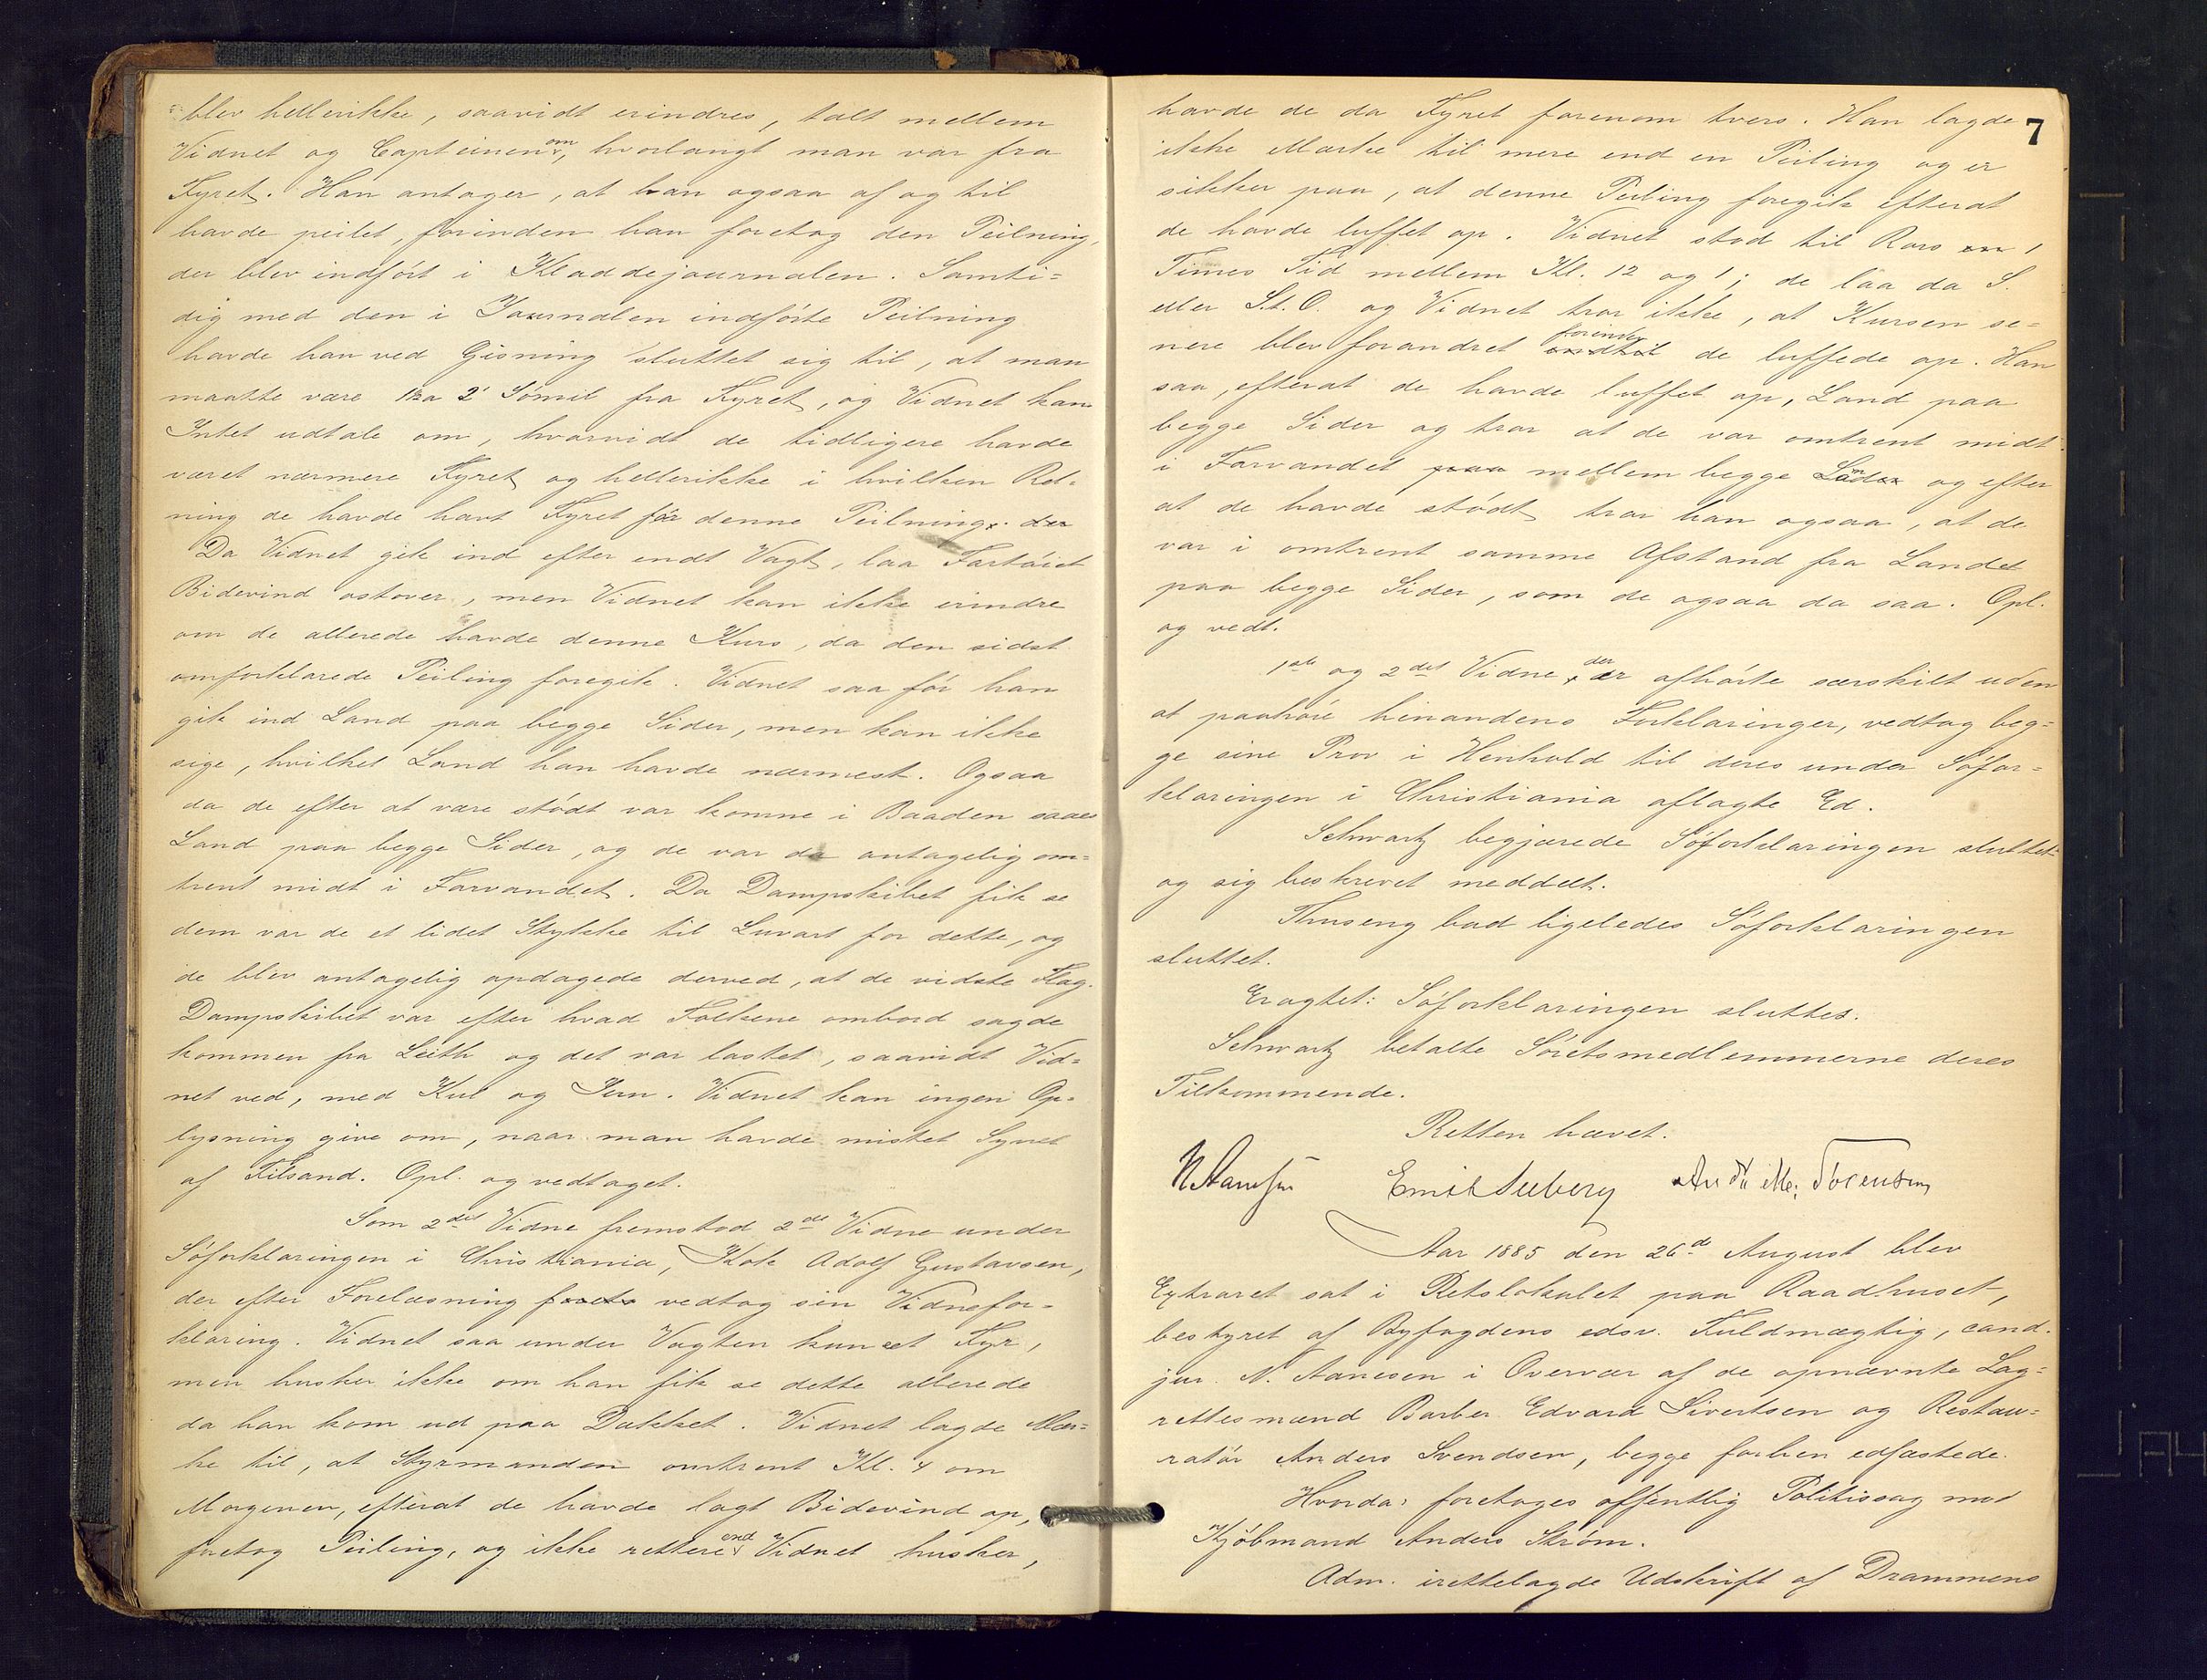 blev hellerikke, saavidt erindres, talt mellem
Vidnet og Capteinen om, hvorlangt man var fra
Fyret. Han antager, at han ogsaa af og til
havde peilet, forinden han foretog den Peilning,
der blev indført i Kladdejournalen. Samti=
dig med den i Journalen indførte Peilning
havde han ved Gisning sluttet sig til, at man
maatte være 1½ a 2 Sømil fra Fyret, og Vidnet kan
Intet udtale om, hvorvidt de tidligere havde
været nærmere Fyret og hellerikke i hvilken Ret=
ning de havde havt Fyret før denne Peilning. der
Da Vidnet gik ind efter endt Vagt, laa Fartøiet
Bidevind ostover, men Vidnet kan ikke erindre
om de allerede havde denne Kurs, da den sidst
omforklarede Peiling foregik. Vidnet saa før han
gik ind Land paa begge Sider, men kan ikke
sige, hvilket Land han havde nærmest. Ogsaa
da de efter at være stødt var komne i Baaden saaes
Land paa begge Sider, og de var da antagelig om=
trent midt i Farvandet. Da Dampskibet fik se
dem var de et lidet Stykke til Luvart for dette, og
de blev antagelig opdagede derved, at de vidste Flag.
Dampskibet var efter hvad Folkene ombord sagde
kommen fra Leith og det var lastet, saavidt Vid=
net ved, med Kul og Jern. Vidnet kan ingen Op=
lysning give om, naar man havde mistet Synet
af Filsand. Opl. og vedtaget.
Som 2det Vidne fremstod 2de Vidne under
Søforklaringen i Christiania, Kok Adolf Gustavsen,
der efter Forelæsning vedtog sin Vidnefor=
klaring. Vidnet saa under Vagten kun et Fyr,
men husker ikke om han fik se dette allerede
da han kom ud paa Dækket. Vidnet lagde Mær=
ke til, at Styrmanden omtrent Kl. 4 om
Morgenen, efterat de havde lagt Bidevind op,
foretog Peiling, og ikke rettere end Vidnet husker,
7
havde de da Fyret forenom tvers. Han lagde
ikke Mærke til mere end en Peiling og er
sikker paa, at denne Peiling foregik efterat
de havde luffet op. Vidnet stod til Rors en 1
Times Tid mellem Kl. 12 og 1; de laa da S.
eller S.t.O. og Vidnet tror ikke, at Kursen se=
nere blev forandret forinden indtil de luffede op. Han
saa, efterat de havde luffet op, Land paa
begge Sider og tror at de var omtrent midt
i Farvandet paa mellem begge Land og efter
at de havde stødt tror han ogsaa, at de
var i omtrent samme Afstand fra Landet
paa begge Sider, som de ogsaa da saa. Opl.
og vedt.
1ste og 2det Vidne, der er afhørte særskilt uden
at paahøre hinandens Forklaringer, vedtog beg=
ge sine Prov i Henhold til deres under Søfor=
klaringen i Christiania aflagte Ed.
Schwartz begjærede Søforklaringen sluttet
og sig beskrevet meddelt.
Thuseng bad ligeledes Søforklaringen
sluttet.
Eragtet: Søforklaringen sluttes.
Schwartz betalte Søretsmedlemmerne deres
Tilkommende.
Retten hævet.
N Aanesen Emil Seeberg Sørensen
Aar 1885 den 26de August blev
Extraret sat i Retslokalet paa Raadhuset,
bestyret af Byfogdens edsv. Fuldmægtig, cand.
jur. N. Aanesen i Overvær af de opnævnte Lag=
rettesmænd Barber Edvard Sivertsen og Restau=
ratør Anders Svendsen, begge forhen edfæstede.
Hvorda: foretoges offentlig Politisag mod
Kjøbmand Anders Strøm.
Adm. irettelagde Udskrift af Drammens